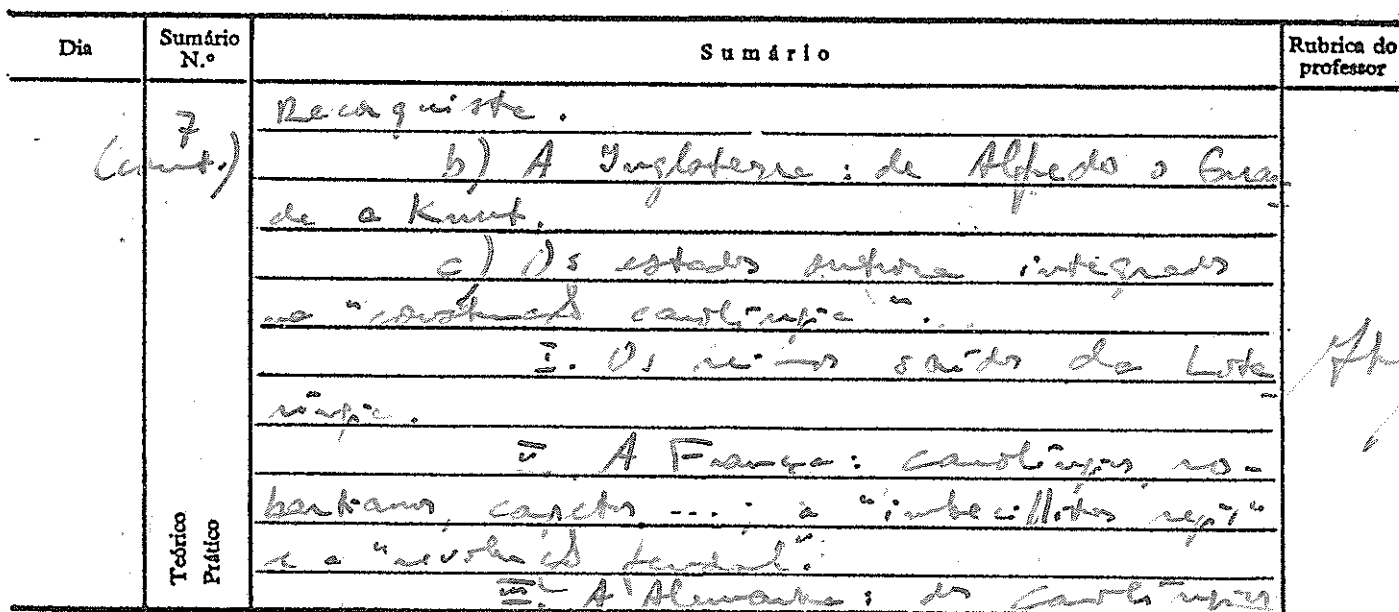 Dia
Sumário N.º
Sumário
Rubrica do professor
7 (cont.)
Reconquista.
b) A Inglaterra: de Alfredo o Gran-
de a Knut.
c) Os estados outrora integrados
na "construção carolíngia".
I. Os reinos saídos da Lota-
ríngia.
II. A França: carolíngios, ro-
bertianos, capetos...; a "imbecillitas regis"
e a "revolução feudal".
III. A Alemanha: dos carolíngios
Teórico
Prático